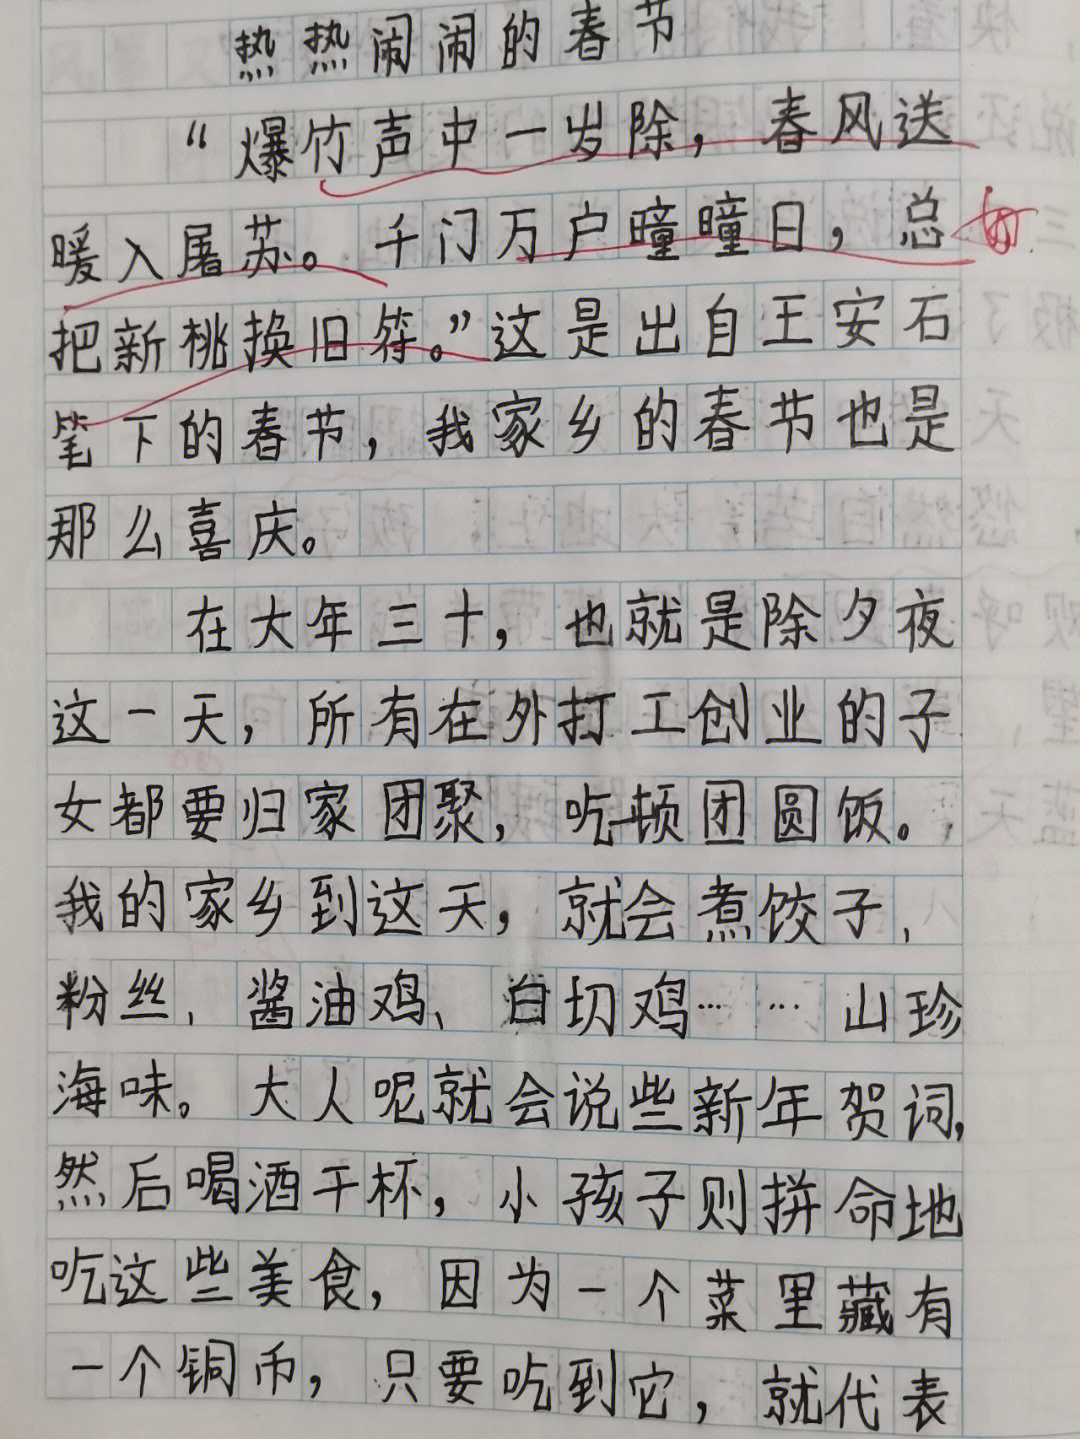 热热闹闹的春节
“爆竹声中一岁除，春风送
暖入屠苏。千门万户曈曈日，总
把新桃换旧符。”这是出自王安石
笔下的春节，我家乡的春节也是
那么喜庆。
在大年三十，也就是除夕夜
这一天，所有在外打工创业的子
女都要归家团聚，吃顿团圆饭。
我的家乡到这天，就会煮饺子、
粉丝、酱油鸡、白切鸡……山珍
海味。大人呢就会说些新年贺词，
然后喝酒干杯，小孩子则拼命地
吃这些美食，因为一个菜里藏有
一个铜币，只要吃到它，就代表